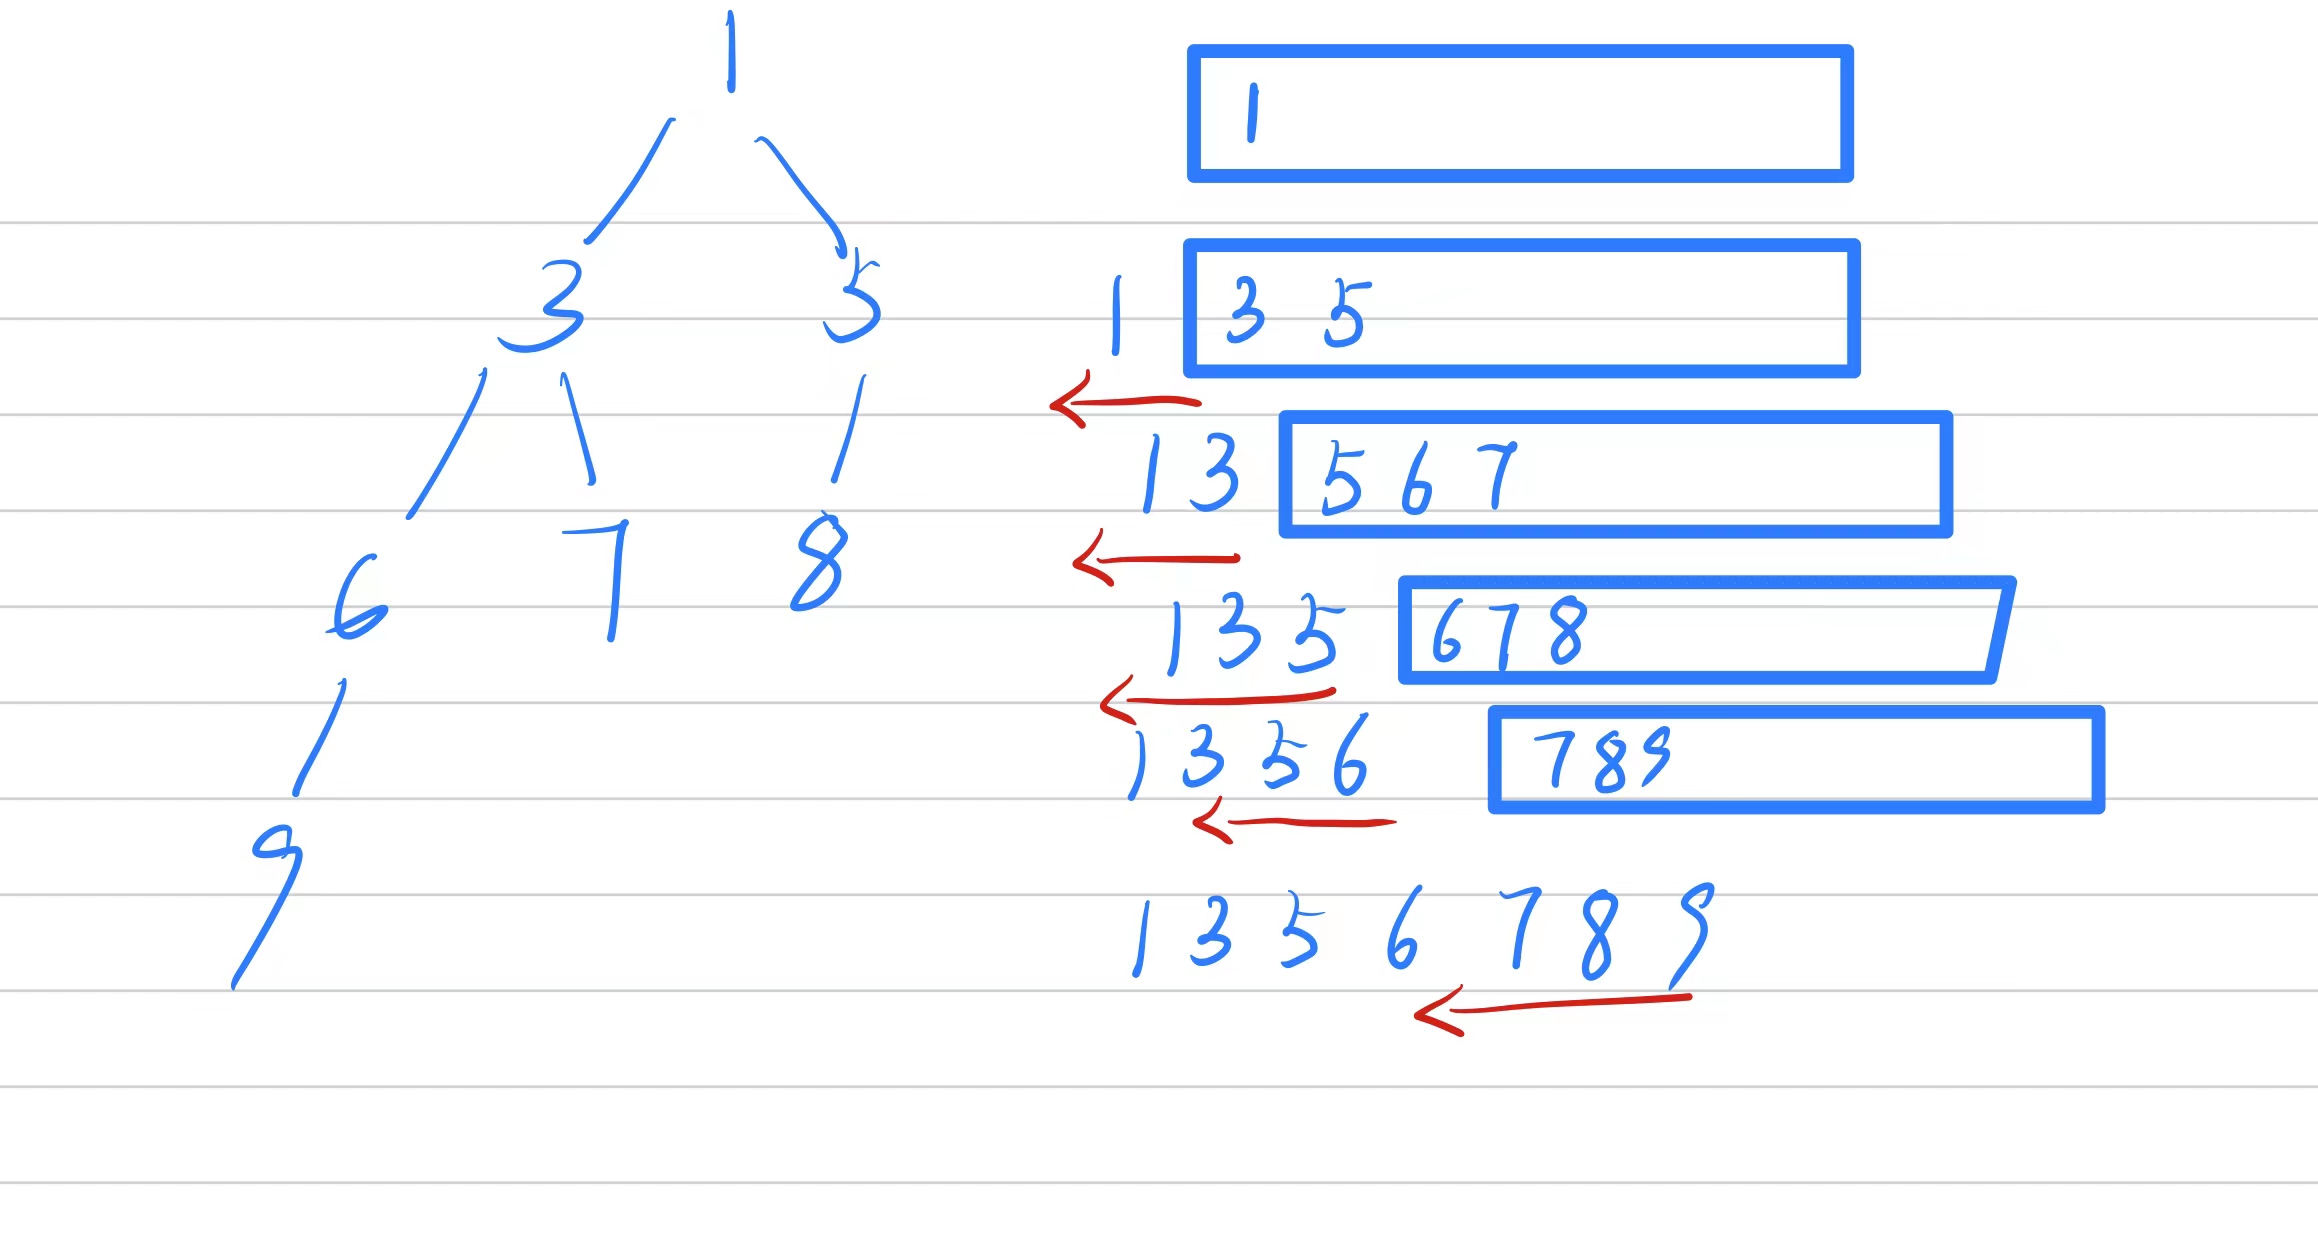 1
3 5
6 7 8
9
1
1 3 5
1 3 5 6 7
1 3 5 6 7 8
1 3 5 6 7 8 9
1 3 5 6 7 8 9